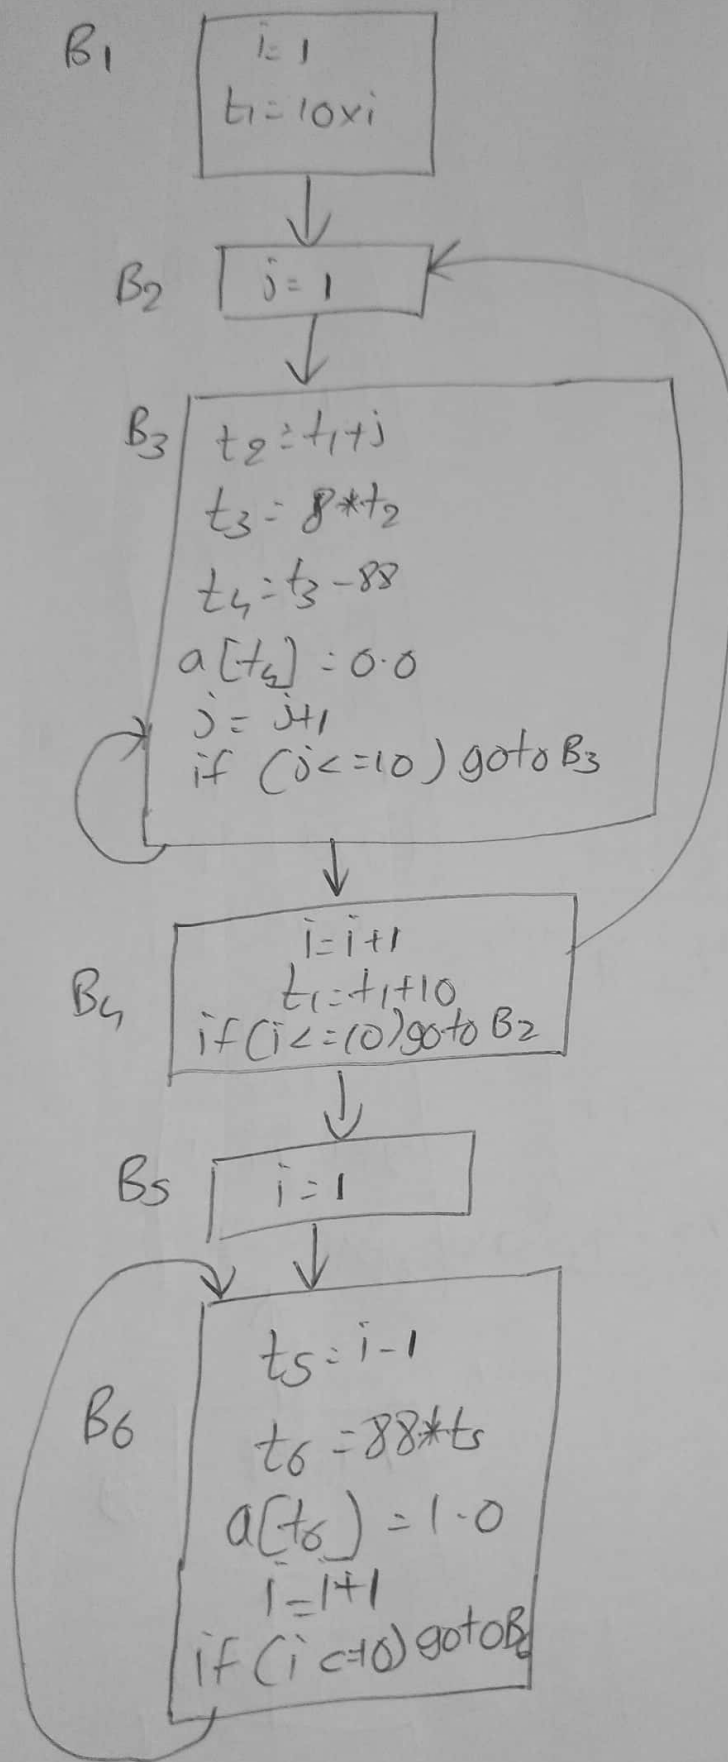 B1
i=1
t1=10xi
B2
j=1
B3
t2=t1+j
t3=8*t2
t4=t3-88
a[t4]=0.0
j=j+1
if (j<=10) goto B3
B4
i=i+1
t1=t1+10
if(i<=10)goto B2
B5
i=1
B6
t5=i-1
t6=88*t5
a[t6]=1.0
i=i+1
if(i<=10) goto B6